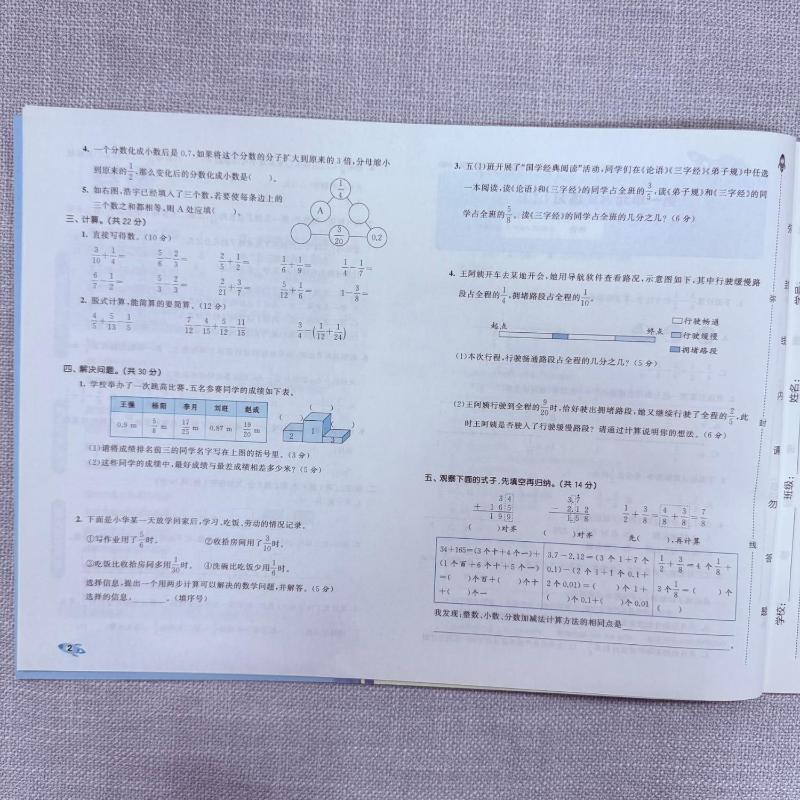 4. 一个分数化成小数后是0.7,如果将这个分数的分子扩大到原来的3倍,分母缩小
到原来的1/2,那么变化后的分数化成小数是( )。
5. 如右图,浩宇已经填入了三个数,若要使每条边上的
三个数之和都相等,则A处应填( )。
1/4
A
3/20
0.2
三、计算。(共22分)
1. 直接写得数。(10分)
3/10+1/4= 5/6-2/3= 2/5+1/2= 1/6+1/9= 1/4-1/7=
6/7-1/2= 5/3-2/3= 2/21+3/7= 5/12+1/6= 1-3/8=
2. 脱式计算,能简算的要简算。(12分)
4/5+5/13-1/5 7/12-4/15+5/12-11/15 3/4-(1/12+1/24)
四、解决问题。(共30分)
1. 学校举办了一次跳高比赛,五名参赛同学的成绩如下表。
王强 杨阳 李月 刘旺 赵成
0.9 m 5/8 m 17/25 m 0.87 m 19/20 m
( )
( )
( )
2 1 3
(1)请将成绩排名前三的同学名字写在上图的括号里。(3分)
(2)这些同学的成绩中,最好成绩与最差成绩相差多少米?(5分)
2. 下面是小华某一天放学回家后,学习、吃饭、劳动的情况记录。
①写作业用了5/6时。 ②收拾房间用了3/10时。
③吃饭比收拾房间多用1/30时。 ④洗碗比吃饭少用1/6时。
选择信息,提出一个用两步计算可以解决的数学问题,并解答。(5分)
选择的信息:______。(填序号)
2
3. 五(1)班开展了“国学经典阅读”活动,同学们在《论语》《三字经》《弟子规》中任选
一本阅读,读《论语》和《三字经》的同学占全班的3/5,读《弟子规》和《三字经》的同
学占全班的5/8。读《三字经》的同学占全班的几分之几?(6分)
4. 王阿姨开车去某地开会,她用导航软件查看路况,示意图如下,其中行驶缓慢路
段占全程的1/4,拥堵路段占全程的1/10。
起点
终点
行驶畅通
行驶缓慢
拥堵路段
(1)本次行程,行驶畅通路段占全程的几分之几?(5分)
(2)王阿姨行驶到全程的9/20时,恰好驶出拥堵路段,她又继续行驶了全程的2/5,此
时王阿姨是否驶入了行驶缓慢路段?请通过计算说明你的想法。(6分)
五、观察下面的式子,先填空再归纳。(共14分)
3 4
+ 1 6 5
1 9 9
( )对齐
3.7
- 2.1 2
1.5 8
( )对齐
1/2+3/8=4/8+3/8=7/8
先( ),再计算
34+165=(3个十+4个一)+
(1个百+6个十+5个一)
=( )个百+( )个十
+( )个一
3.7-2.12=(3个1+7个
0.1)-(2个1+1个0.1+
2个0.01)=( )个1+
( )个0.1+( )个0.01
1/2+3/8=4个1/8+
3个1/8=( )个
( )
我发现:整数、小数、分数加减法计算方法的相同点是
。
密 封 线 内 请 勿 答 题
姓名:
班级:
学校: